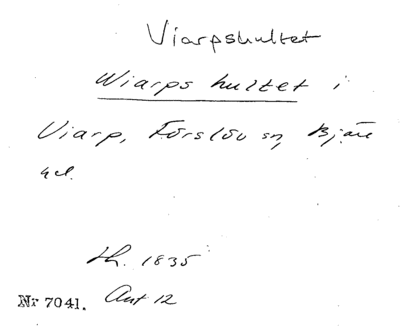 Viarpshultet
Wiarps hultet i
Viarp, Förslöv sn, Bjäre
hd.
Lh. 1835
Nr 7041. Akt 12